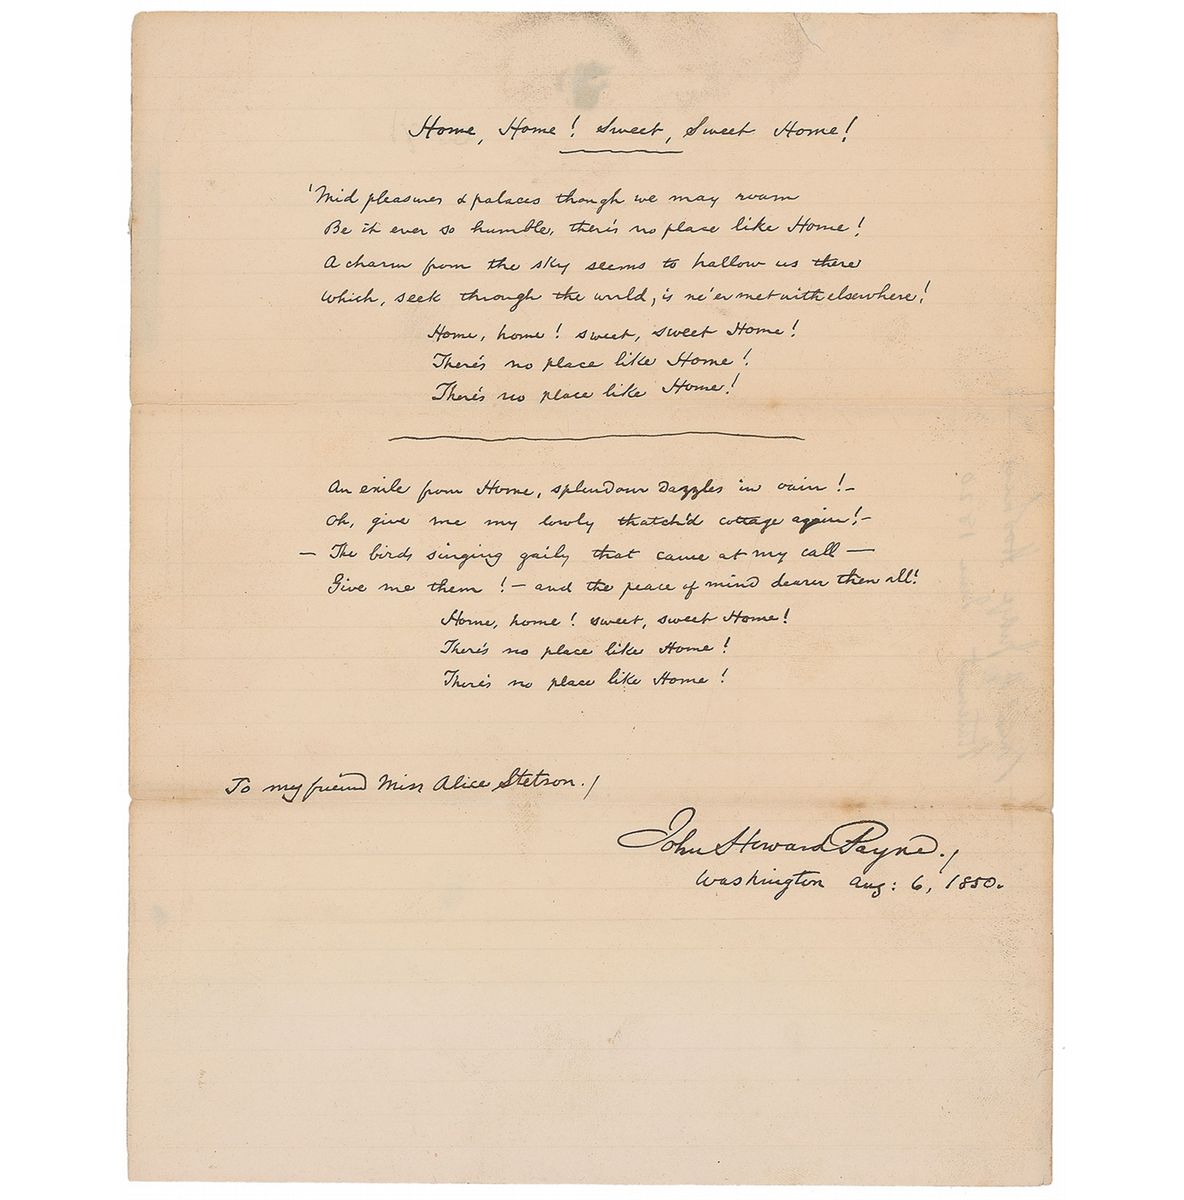 Home, Home! Sweet, Sweet Home!
'Mid pleasures & palaces though we may roam
Be it ever so humble, there's no place like Home!
A charm from the sky seems to hallow us there
Which, seek through the world, is ne'er met with elsewhere!
Home, home! sweet, sweet Home!
There's no place like Home!
There's no place like Home!
An exile from Home, splendour dazzles in vain!-
Oh, give me my lowly thatch'd cottage again!-
- The birds singing gaily that came at my call -
Give me them! - and the peace of mind dearer then all!
Home, home! sweet, sweet Home!
There's no place like Home!
There's no place like Home!
To my friend Miss Alice Stetson./
John Howard Payne./
Washington Aug: 6, 1850.